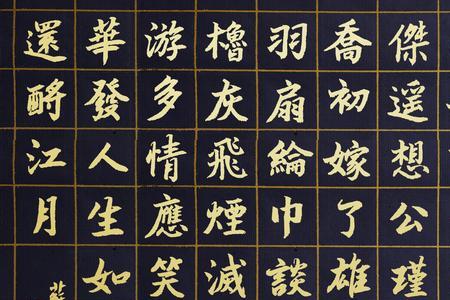 傑遥想公瑾
喬初嫁了雄
羽扇綸巾談
櫓灰飛煙滅
游多情應笑
華發人生如
還酹江月